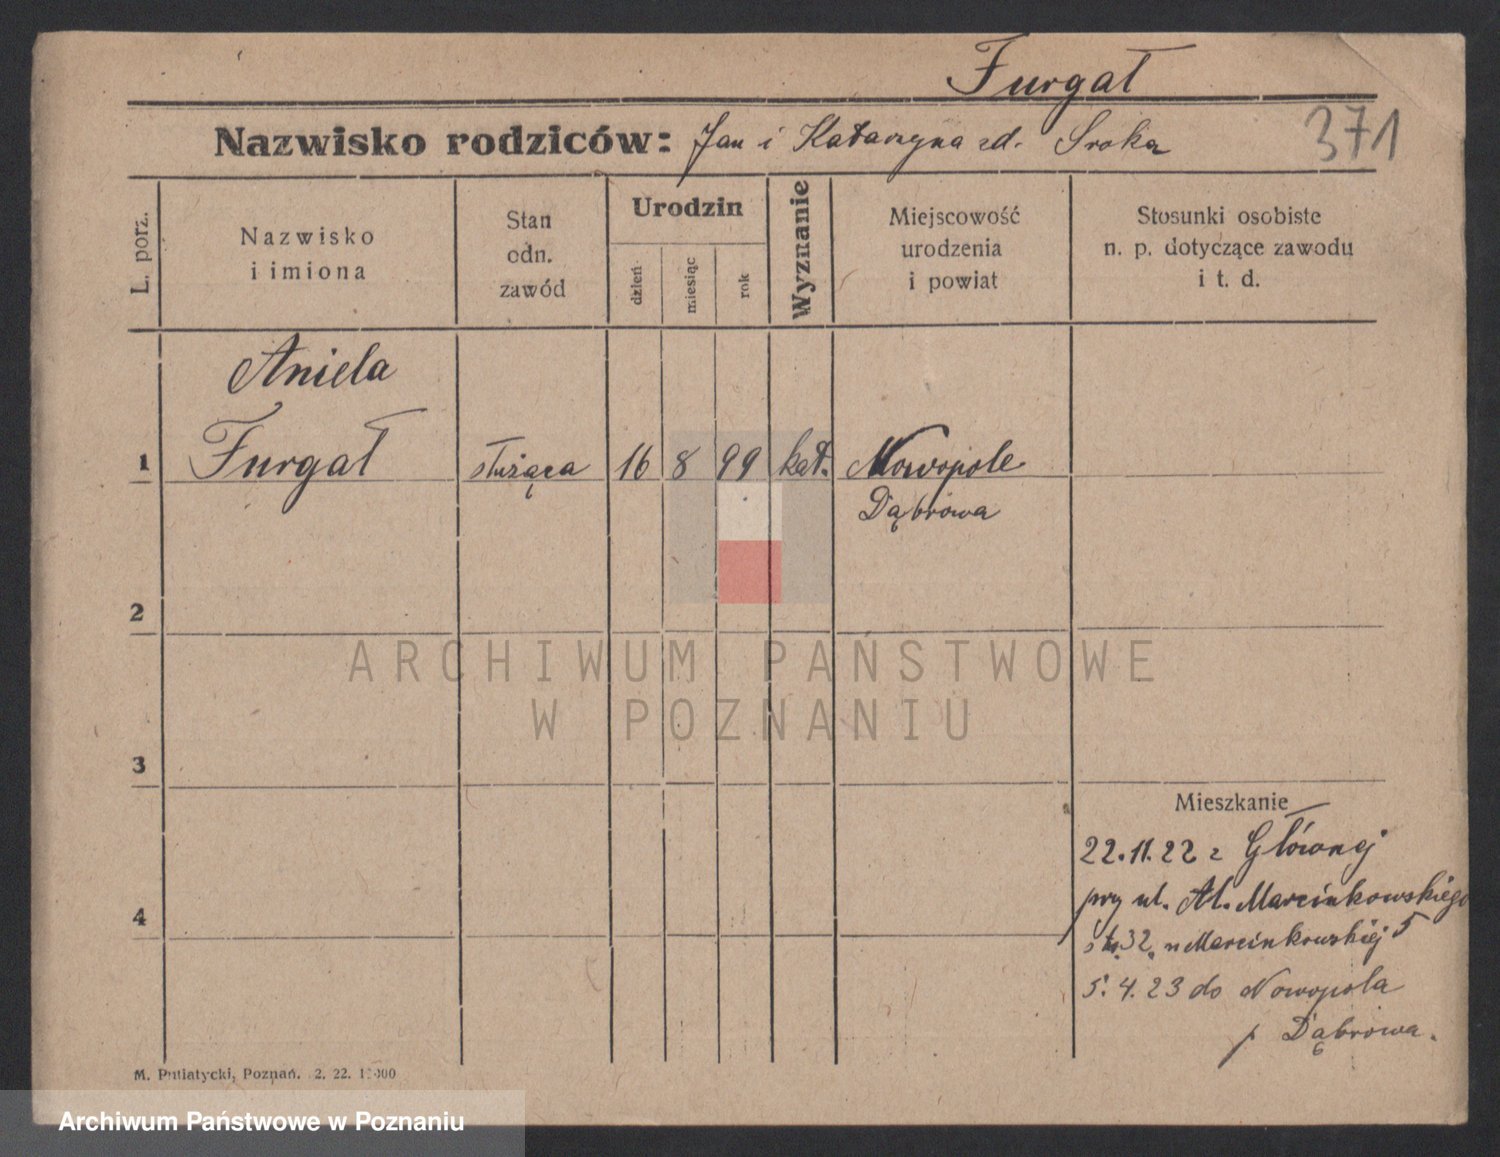 Furgał
371
Nazwisko rodziców: Jan i Katarzyna zd. Sroka
L. porz.
Nazwisko
i imiona
Stan
odn.
zawód
Urodzin
dzień
miesiąc
rok
Wyznanie
Miejscowość
urodzenia
i powiat
Stosunki osobiste
n. p. dotyczące zawodu
i t. d.
Aniela
1 Furgał służąca 16 8 99 kat. Nowopole
Dąbrowa
2
ARCHIWUM PAŃSTWOWE
W POZNANIU
3
Mieszkanie
22.11.22 z Głównej
przy ul. Al. Marcinkowskiego
32 Marcinkowskiej 5
4
5.4.23 do Nowopola
p Dąbrowa.
M. Putiatycki, Poznań. 2. 22.
Archiwum Państwowe w Poznaniu